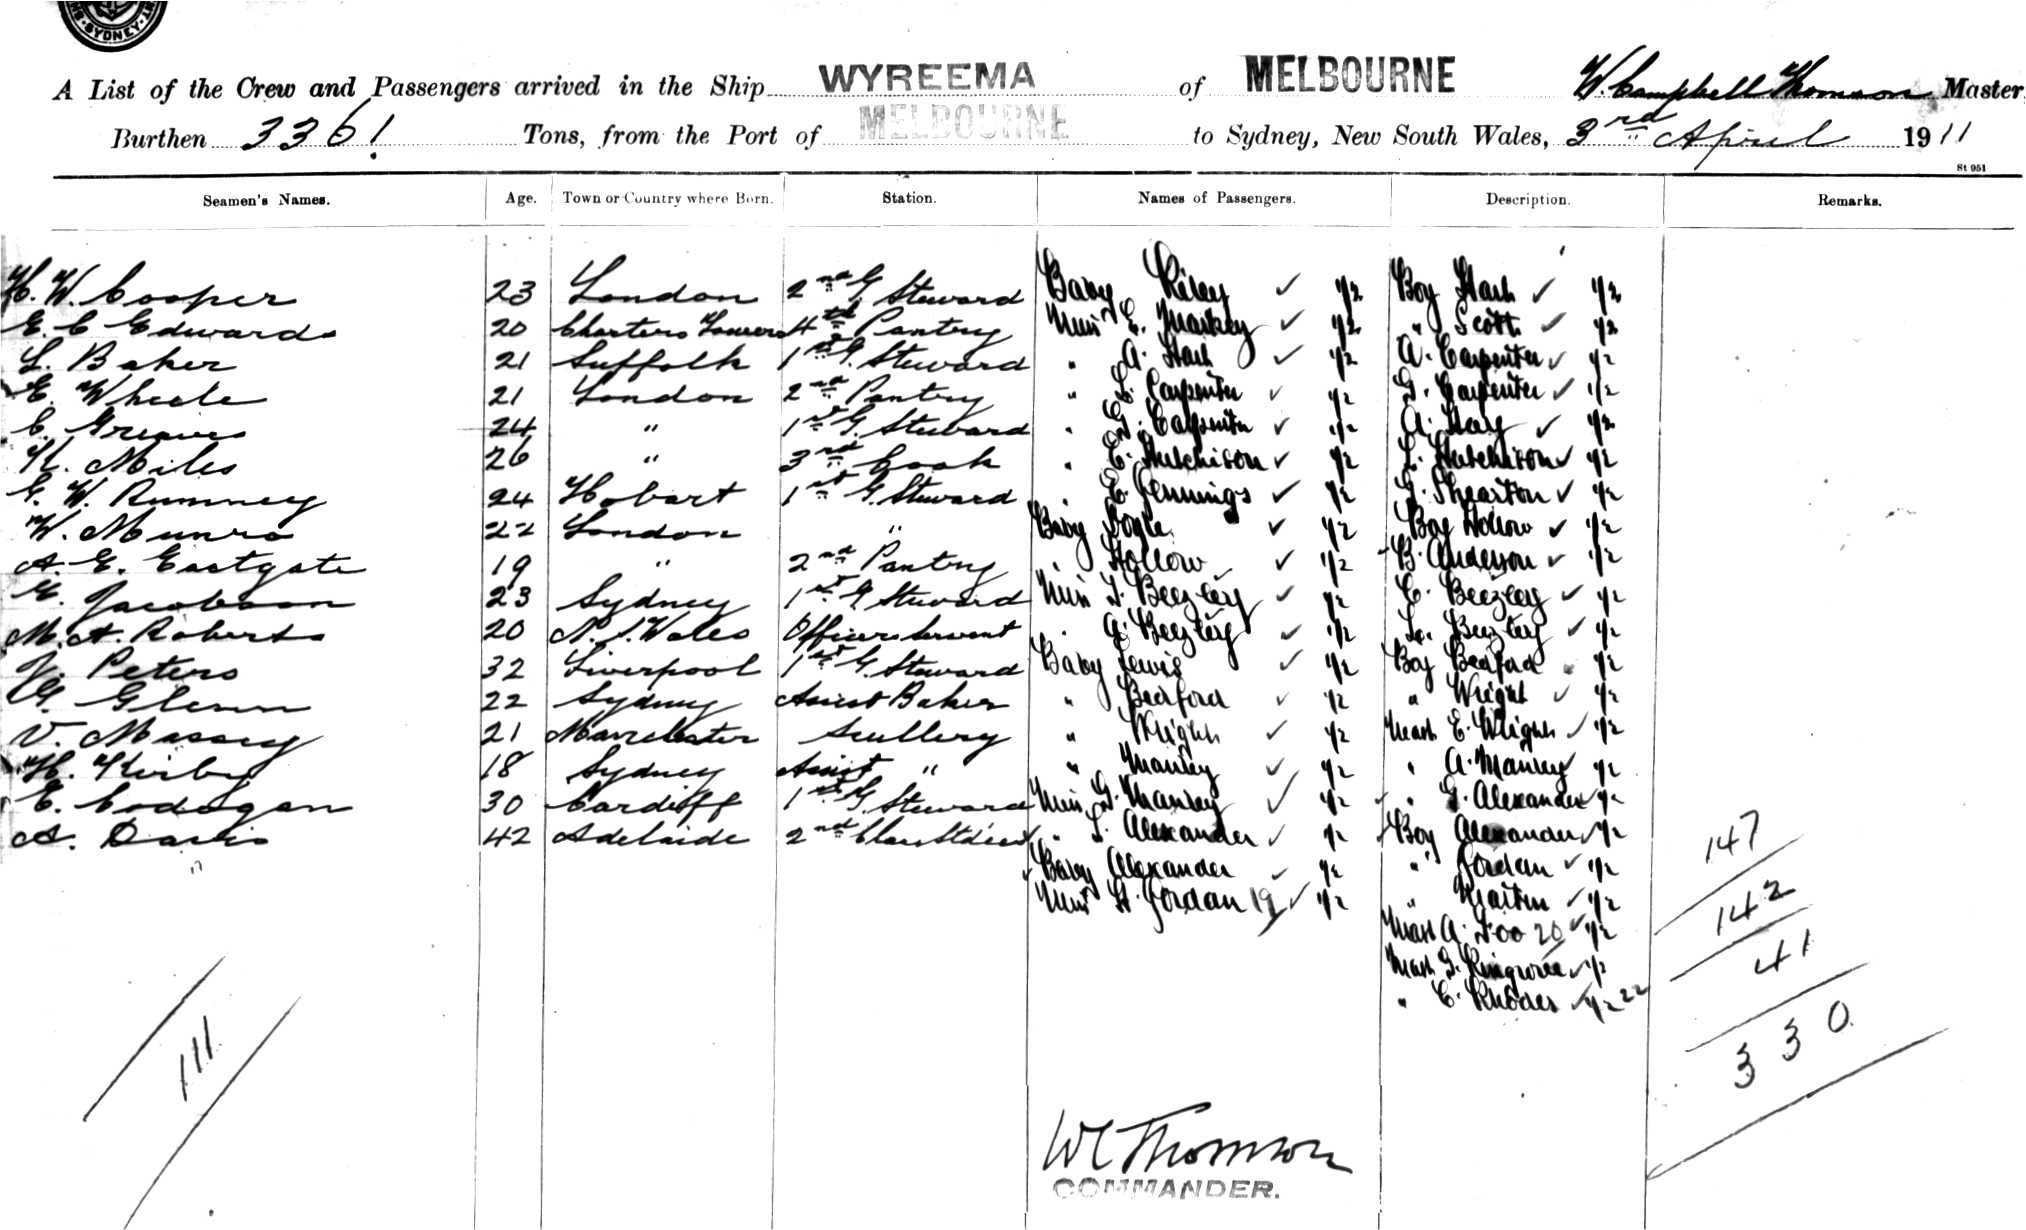 SYDNEY
A List of the Crew and Passengers arrived in the Ship WYREEMA of MELBOURNE W. Campbell Thomson Master,
Burthen 3361 Tons, from the Port of MELBOURNE to Sydney, New South Wales, 3rd April 1911
St 951
Seamen's Names. Age. Town or Country where Born. Station. Names of Passengers. Description. Remarks.
H. W. Cooper 23 London 2nd G. Steward Baby Riley ✓ 1/2 Boy Stark ✓ 1/2
E. C Edwards 20 Charters Towers 4th Pantry Miss E. Markey ✓ 1/2 " Scott ✓ 1/2
L. Baker 21 Suffolk 1st G. Steward " A. Stark ✓ 1/2 A. Carpenter ✓ 1/2
E. Wheele 21 London 2nd Pantry " L. Carpenter ✓ 1/2 G. Carpenter ✓ 1/2
C Greaves 24 " 1st G. Steward " G. Carpenter ✓ 1/2 A. Hay ✓ 1/2
H. Miles 26 " 3rd Cook " E. Hutchison ✓ 1/2 L. Hutchison ✓ 1/2
G. W. Rumney 24 Hobart 1st G. Steward " E. Jennings ✓ 1/2 G. Shearton ✓ 1/2
W. Munro 22 London " Baby Bogle ✓ 1/2 Boy Hollow ✓ 1/2
A. E. Eastgate 19 " 2nd Pantry " Hollow ✓ 1/2 B. Anderson ✓ 1/2
E. Jacobson 23 Sydney 1st G. Steward Miss I. Beezley ✓ 1/2 C. Beezley ✓ 1/2
M. A. Roberts 20 N. S. Wales Officers Servant " A. Beezley ✓ 1/2 L. Beezley ✓ 1/2
J. Peters 32 Liverpool 1st G. Steward Baby Lewis ✓ 1/2 Boy Bedford 1/2
G. Glenn 22 Sydney Assist Baker " Bedford ✓ 1/2 " Wright ✓ 1/2
V. Massey 21 Manchester Scullery " Wright ✓ 1/2 Mast E. Wright ✓ 1/2
H. Kirby 18 Sydney Assist " " Manley ✓ 1/2 " A. Manley ✓ 1/2
E. Codogan 30 Cardiff 1st G. Steward Miss G. Manley ✓ 1/2 " G. Alexander ✓ 1/2
A. Davis 42 Adelaide 2nd Class Stdess " I. Alexander ✓ 1/2 Boy Alexander ✓ 1/2
17 Baby Alexander ✓ 1/2 " Jordan ✓ 1/2
Miss H. Jordan 19 ✓ 1/2 " Martin ✓ 1/2
Mast A. Foo 20 ✓ 1/2
Mast G. Ringwood ✓ 1/2
" C. Rhodes ✓ 1/2 22
147
142
41
330
111
WC Thomson
COMMANDER.